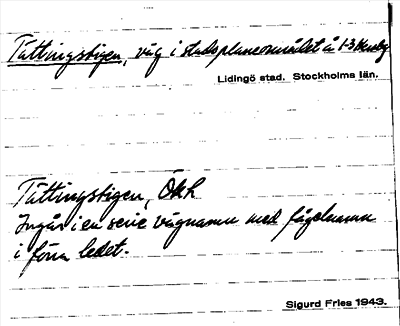 Tättingstigen, väg i stadsplaneområdet å 1-3 Hersby
Lidingö stad. Stockholms län.
Tättingstigen, Ökh
Ingår i en serie vägnamn med fågelnamn
i förra ledet.
Sigurd Fries 1943.